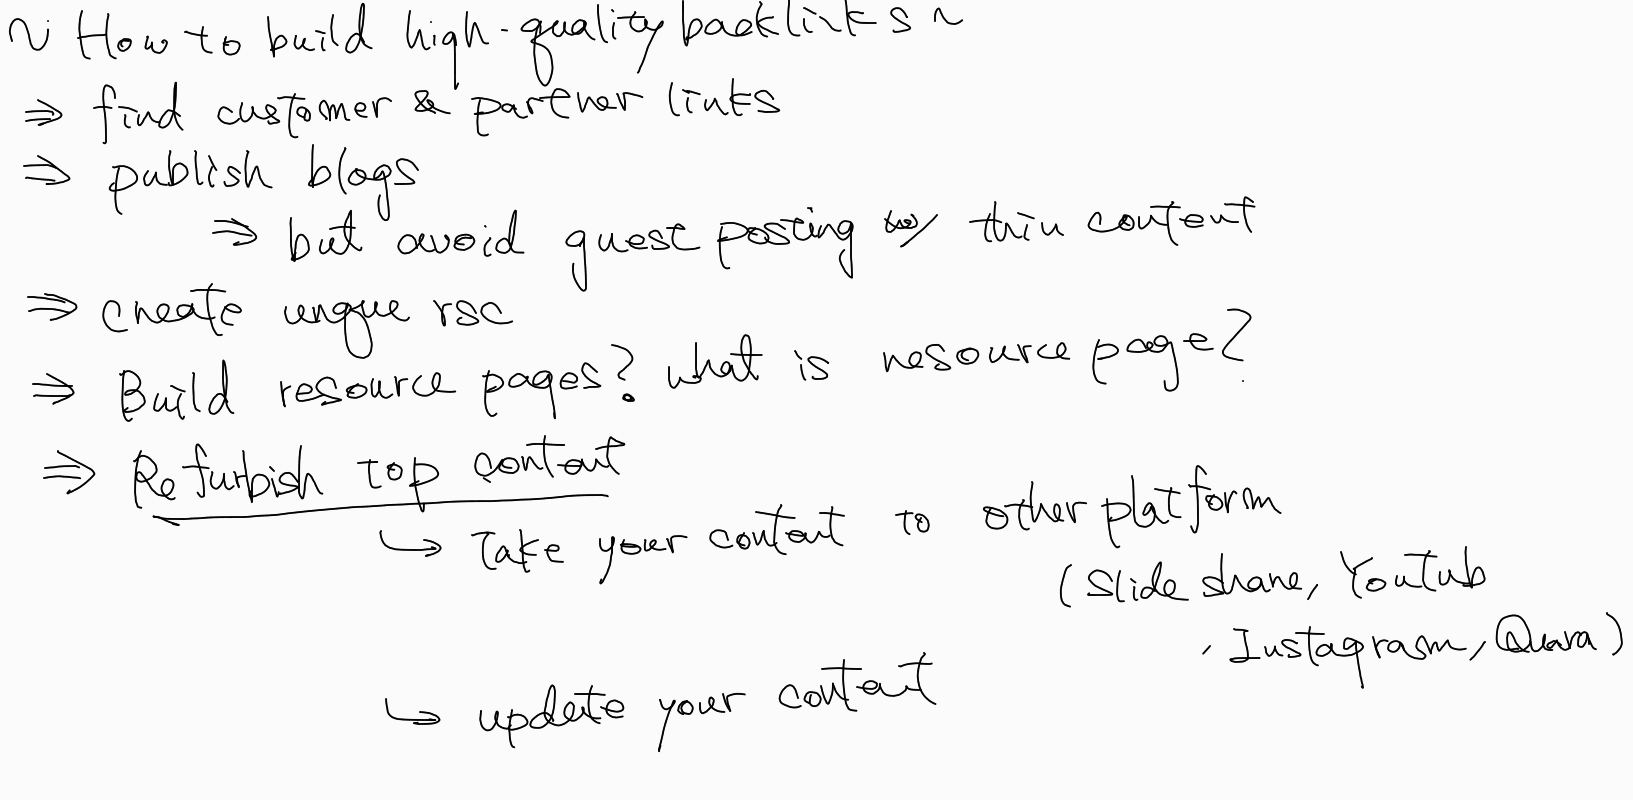 ~ How to build high-quality backlinks ~
⇒ find customer & partner links
⇒ publish blogs
⇒ but avoid guest posting w/ thin content
⇒ create unque rsc
⇒ Build resource pages? what is resource page?
⇒ Refurbish top content
↳ Take your content to other platform
(Slide share, Youtub
, Instagram, Quora)
↳ update your content